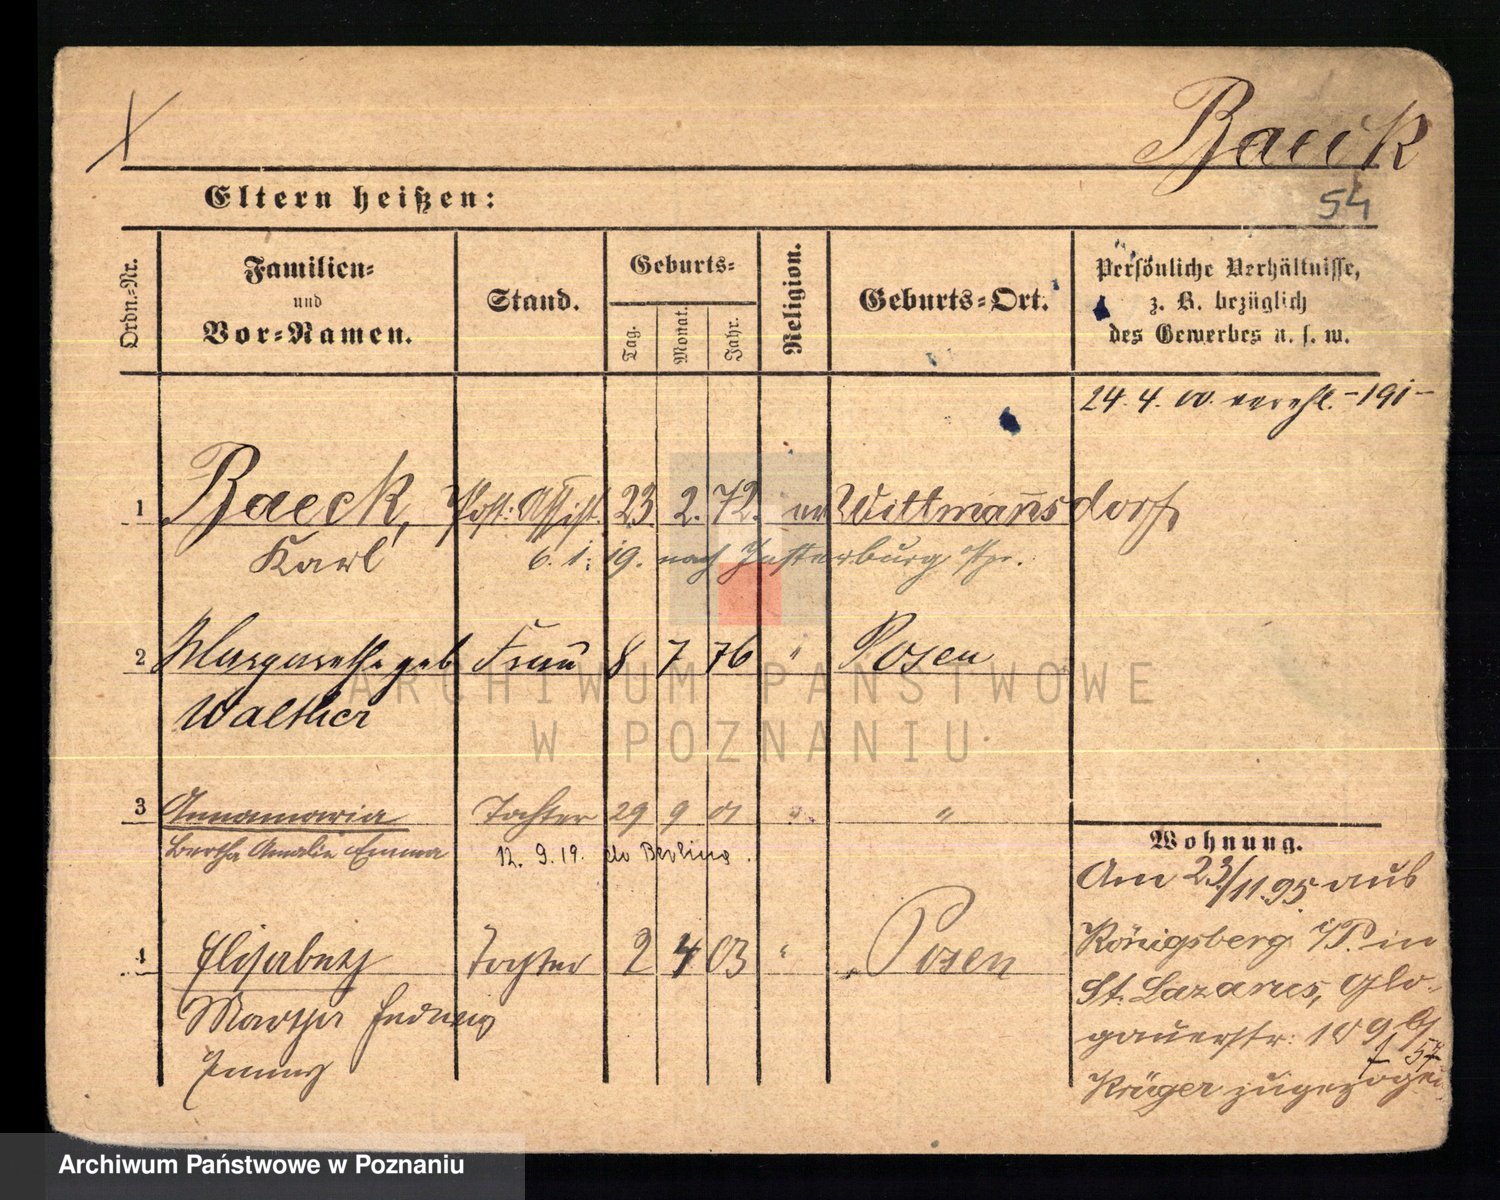 Baeck
54
Eltern heißen:
Ordn.-Nr.
Familien-
und
Vor-Namen.
Stand.
Geburts-
Tag.
Monat.
Jahr.
Religion.
Geburts-Ort.
Persönliche Verhältnisse,
z. B. bezüglich
des Gewerbes u. s. w.
24. 4. 00. verehl. -191-
1 Baeck, Post. Assist. 23 2. 72. ev Wittmannsdorf
Karl 6. 1. 19. nach Insterburg Opr.
2 Margarethe geb Frau 8 7 76 " Posen
Walther
3 Annamaria Tochter 29 9 01 " "
Bertha Amalie Emma 12. 9. 19. do Berlina.
4 Elisabeth Tochter 2 4 03 " Posen
Martha Hedwig
Jenny
Wohnung.
Am 23/11.95 aus
Königsberg i/P. in
St. Lazarus, Glo-
gauerstr: 109 b/
Krüger zugezogen
ARCHIWUM PAŃSTWOWE
W POZNANIU
Archiwum Państwowe w Poznaniu